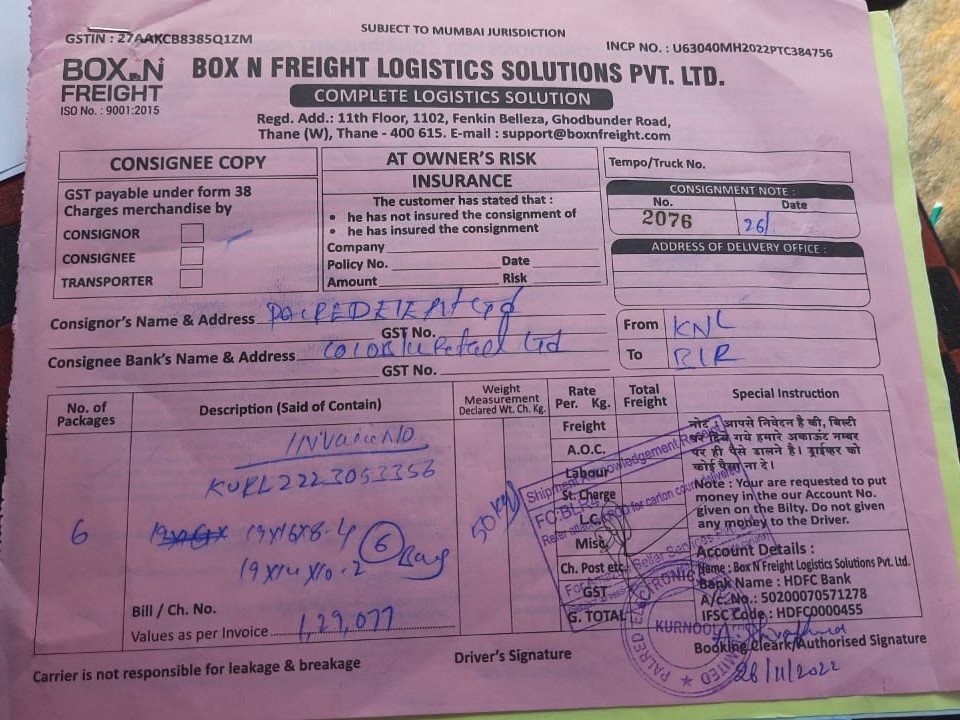 SUBJECT TO MUMBAI JURISDICTION
GSTIN : 27AAKCB8385Q1ZM
INCP NO. : U63040MH2022PTC384756
BOX N FREIGHT
ISO No. : 9001:2015
BOX N FREIGHT LOGISTICS SOLUTIONS PVT. LTD.
COMPLETE LOGISTICS SOLUTION
Regd. Add.: 11th Floor, 1102, Fenkin Belleza, Ghodbunder Road,
Thane (W), Thane - 400 615. E-mail : support@boxnfreight.com
CONSIGNEE COPY
GST payable under form 38
Charges merchandise by
CONSIGNOR
CONSIGNEE
TRANSPORTER
AT OWNER'S RISK
INSURANCE
The customer has stated that :
• he has not insured the consignment of
• he has insured the consignment
Company
Policy No. Date
Amount Risk
Tempo/Truck No.
CONSIGNMENT NOTE :
No. Date
2076 26/
ADDRESS OF DELIVERY OFFICE :
Consignor's Name & Address
GST No.
Consignee Bank's Name & Address Retail Ltd
GST No.
From KNL
To BLR
No. of Packages
Description (Said of Contain)
Weight Measurement
Declared Wt. Ch. Kg.
Rate Per. Kg.
Total Freight
Special Instruction
6
Invoice NO
19x16x8-4 6 Bag
19x14x10-2
50 kg
Bill / Ch. No.
Values as per Invoice 1,29,077
Freight
A.O.C.
Labour
St. Charge
L.C.
Misc.
Ch. Post etc.
GST
G. TOTAL
नोट : आपसे निवेदन है की, बिल्टी
पर दिये गये हमारे अकाऊंट नम्बर
पर ही पैसे डालने है। ड्राईव्हर को
कोई पैसा ना दे।
Note : Your are requested to put
money in the our Account No.
given on the Bilty. Do not given
any money to the Driver.
Account Details :
Name : Box N Freight Logistics Solutions Pvt. Ltd.
Bank Name : HDFC Bank
A/c. No.: 50200070571278
IFSC Code : HDFC0000455
Shipment Acknowledgement Receipt
FC:BLR
for carton count delivered
Seller Services
PALRED ELECTRONIC LIMITED
KURNOOL
Carrier is not responsible for leakage & breakage
Driver's Signature
Booking Cleark/Authorised Signature
26/11/2022